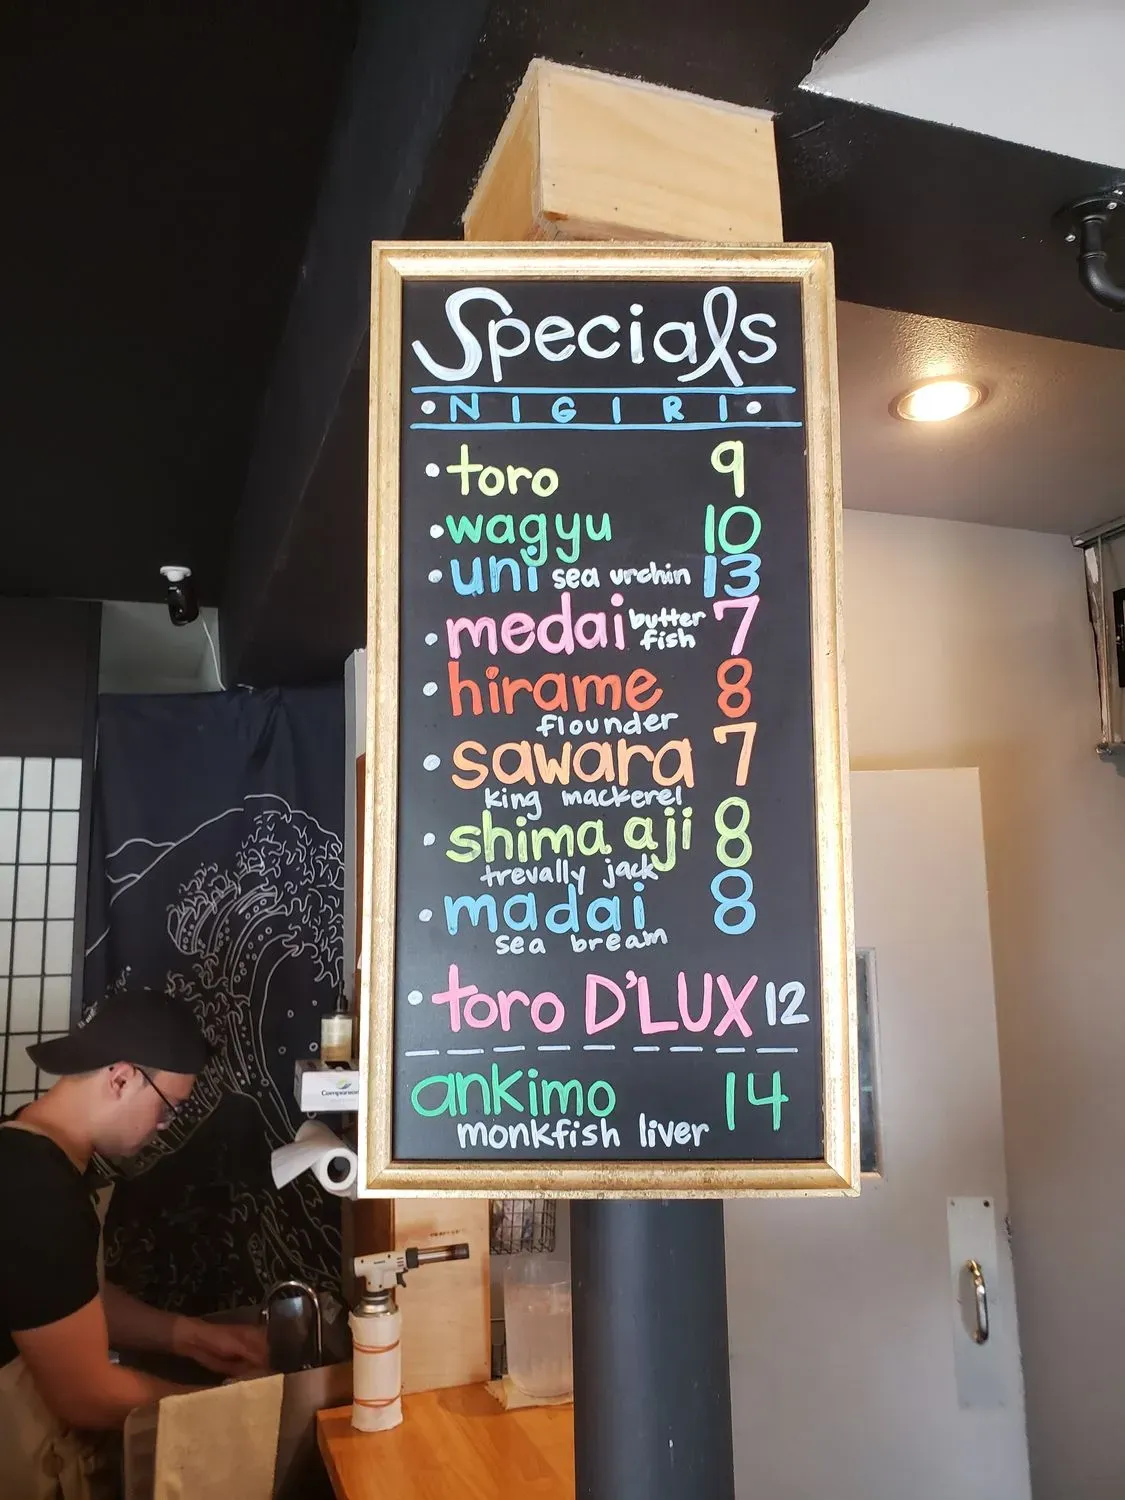 Specials
• NIGIRI •
• toro 9
• wagyu 10
• uni sea urchin 13
• medai butter fish 7
• hirame 8
flounder
• sawara 7
king mackerel
• shima aji 8
trevally jack
• madai 8
sea bream
• toro D'LUX 12
ankimo 14
monkfish liver
Companion